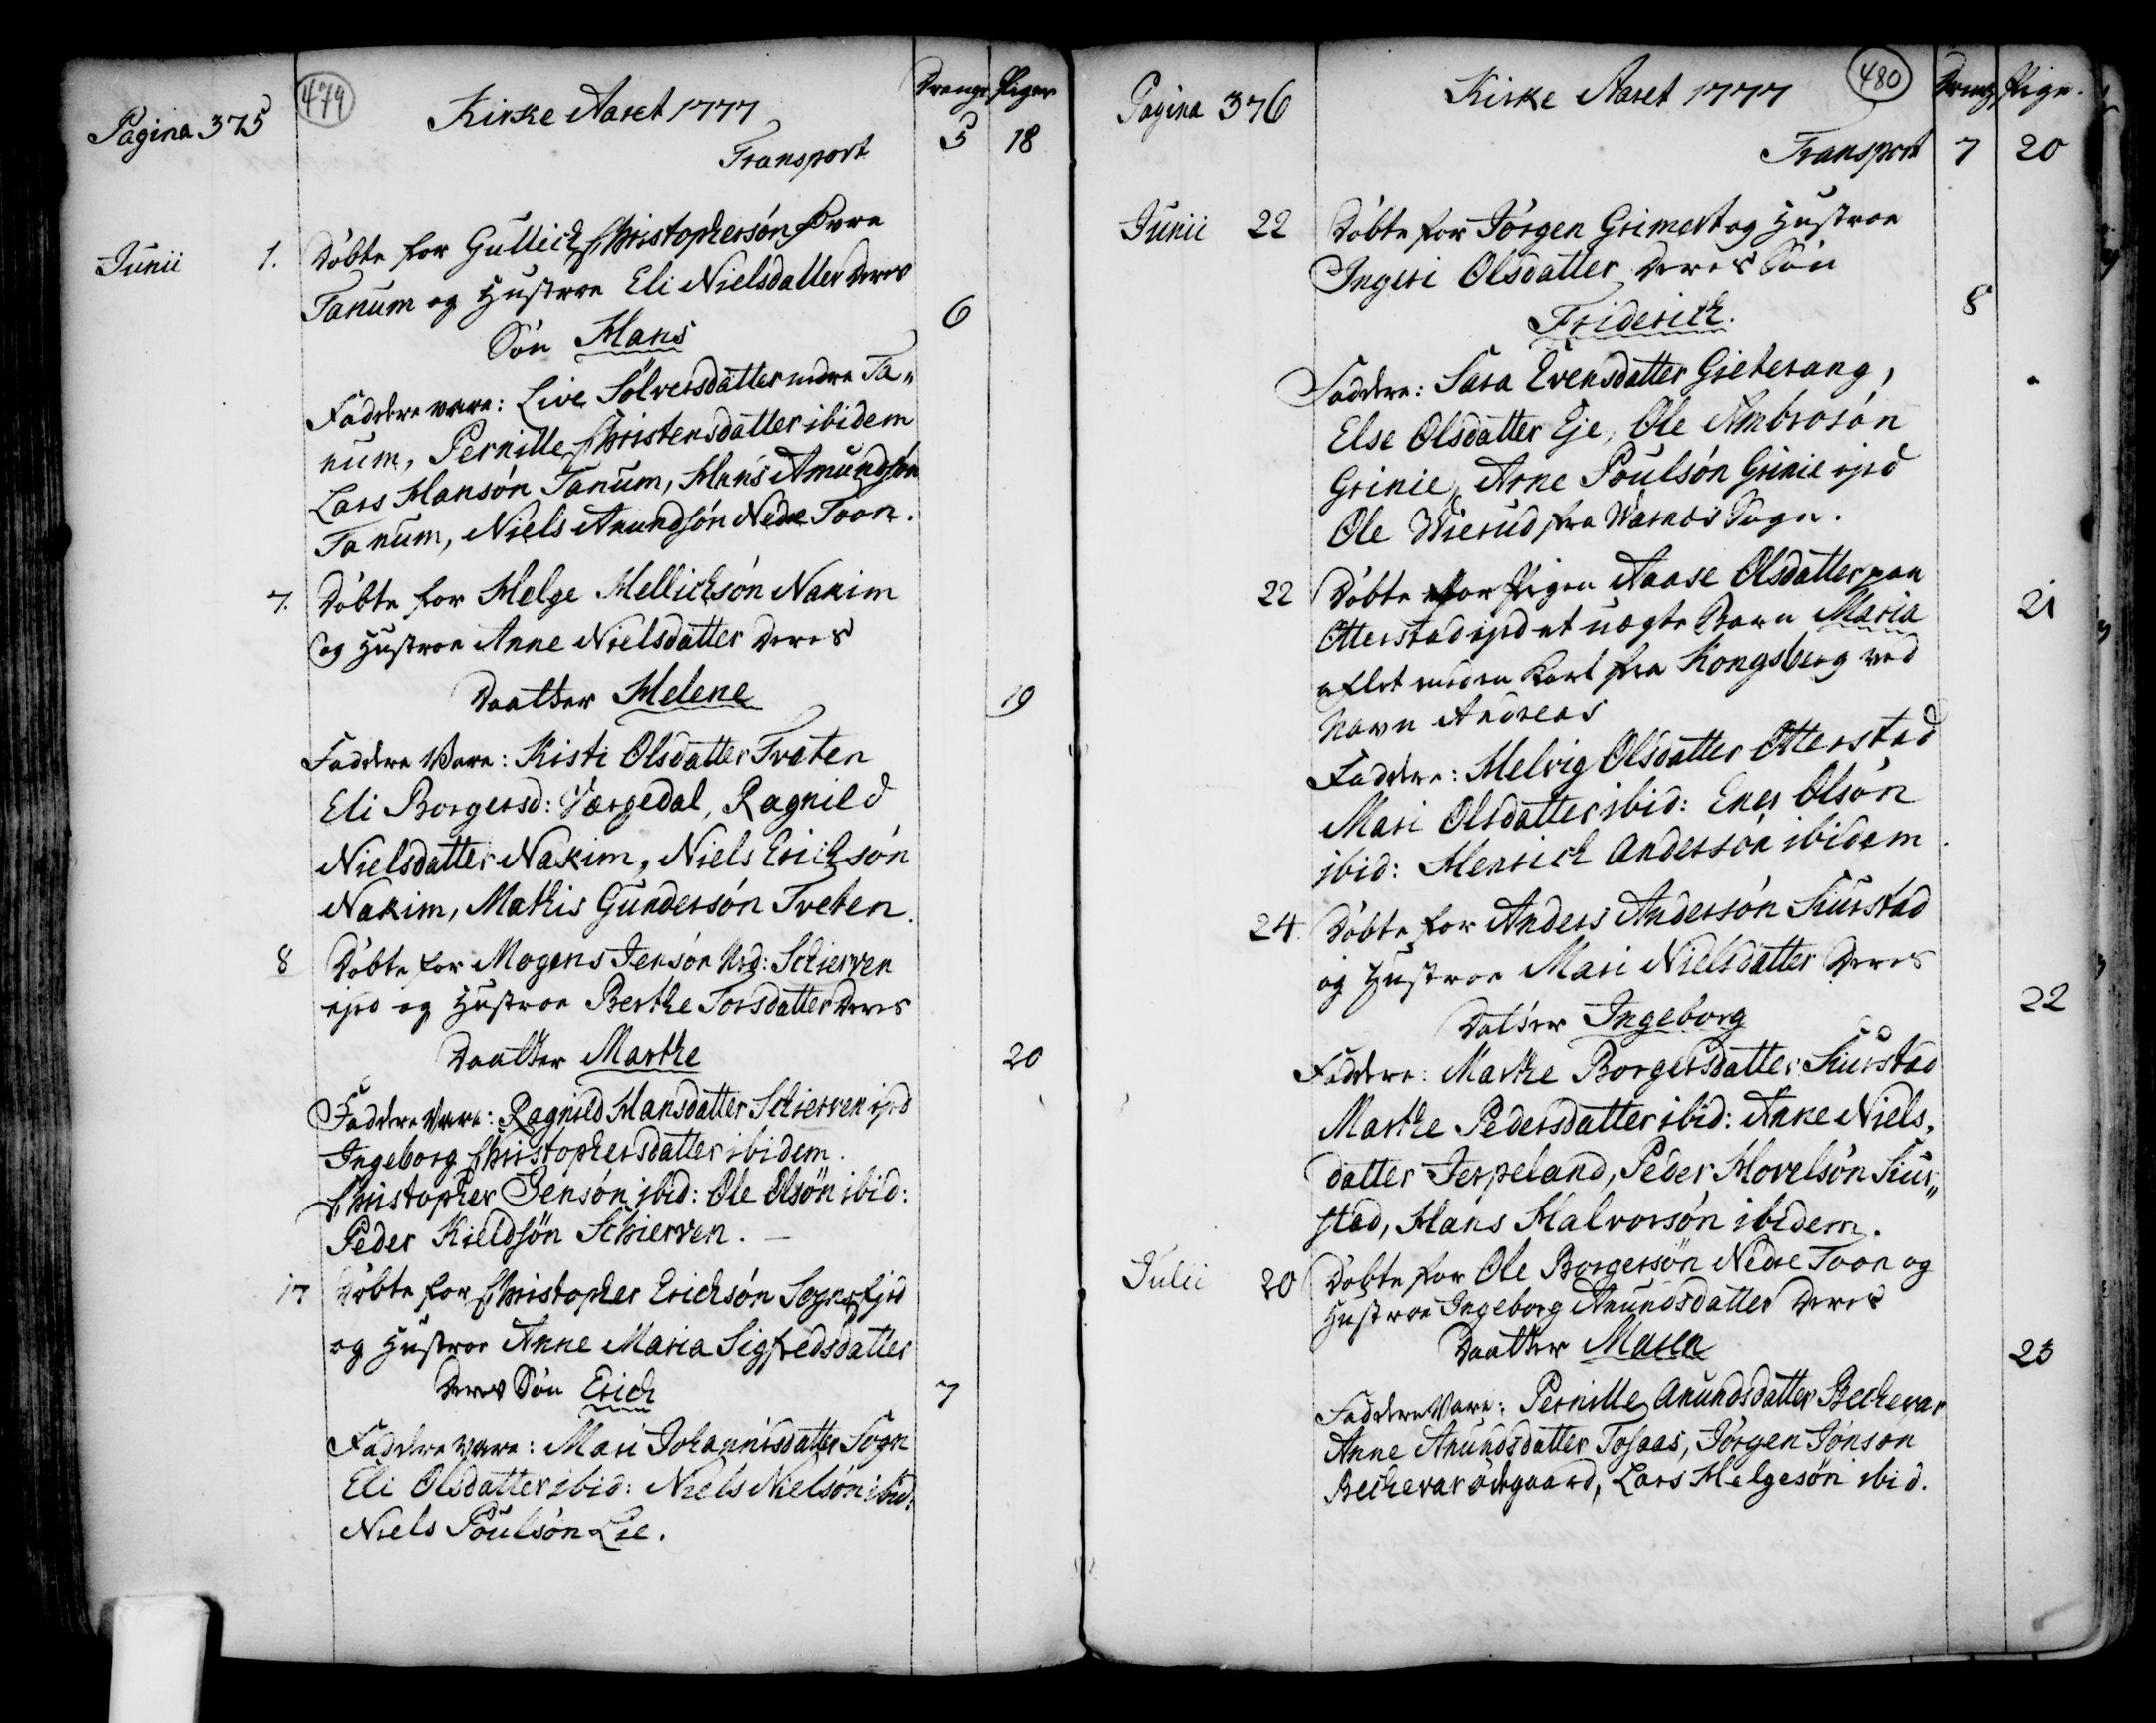 Pagina 375
479
Kirke Aaret 1777
Drenge Piger
Transport 5 18
Junii 1. Döbte for Gullich Christophersön Övre
Tanum og Hustroe Eli Nielsdatter Deres
Sön Hans 6
Faddere vare: Live Sölversdatter nedre Ta„
num, Pernille Christensdatter ibidem
Lars Hansön Tanum, Hans Amundsön
Tanum, Niels Anundsön Nedre Toon.
7. Döbte for Helge Mellichsön Nakim
og Hustroe Anne Nielsdatter Deres
Daatter Helene 19
Faddere Vare: Kisti Olsdatter Tveten
Eli Borgersd: Værgedal, Ragnild
Nielsdatter Nakim, Niels Erichsön
Nakim, Mathis Gundersön Tveten.
8 Döbte for Mogens Jensön Nrd: Schierven
ejed og Hustroe Berthe Torsdatter Deres
Daatter Marthe 20
Faddere Vare: Ragnild Hansdatter Schierven ejed
Ingeborg Christophersdatter ibidem.
Christopher Jensön ibid: Ole Olsön ibid:
Peder Kieldsön Schierven. —
17 Döbte for Christopher Erichsön Sognsejed
og Hustroe Anne Maria Sigfredsdatter
Deres Sön Erich 7
Faddere vare: Mari Johannisdatter Sogn
Eli Olsdatter ibid: Niels Nielsön ibid:
Niels Poulsön Lie.
Pagina 376
Kirke Aaret 1777
480
Dreng Pige.
Transport 7 20
Junii 22 Döbte for Jörgen Grimert og Hustroe
Ingeri Olsdatter Deres Sön
Friderich. 8
Faddere: Sara Evensdatter Gieterang,
Else Olsdatter Eje, Ole Ambrosön
Grinie, Arne Poulsön Grinie ejed
Ole Wierud fra Warnæs Sogn.
22 Döbte for Pigen Aaase Olsdatter paa
Otterstad ejed et uægte Barn Maria 21
aflet med en Karl fra Kongsberg ved
Navn Andreas
Faddere: Helvig Olsdatter Otterstad
Mari Olsdatter ibid: Ener Olsön
ibid: Henrich Andersön ibidem.
24. Döbte for Anders Andersön Siurstad
og Hustroe Mari Nielsdatter Deres
Datter Ingeborg 22
Faddere: Marthe Borgersdatter Siurstad
Marthe Pedersdatter ibid: Anne Niels,
datter Jerpeland, Peder Hovelsön Siur„
stad, Hans Halvorsön ibidem.
Julii 20 Döbte for Ole Borgersön Nedre Toon og
Hustroe Ingeborg Anundsdatter Deres
Daatter Maren 23
Faddere Vare: Pernille Anundsdatter Bechevar
Anne Anundsdatter Tosaas, Jörgen Jönsön
Bechevar ödegaard, Lars Helgesön ibid.